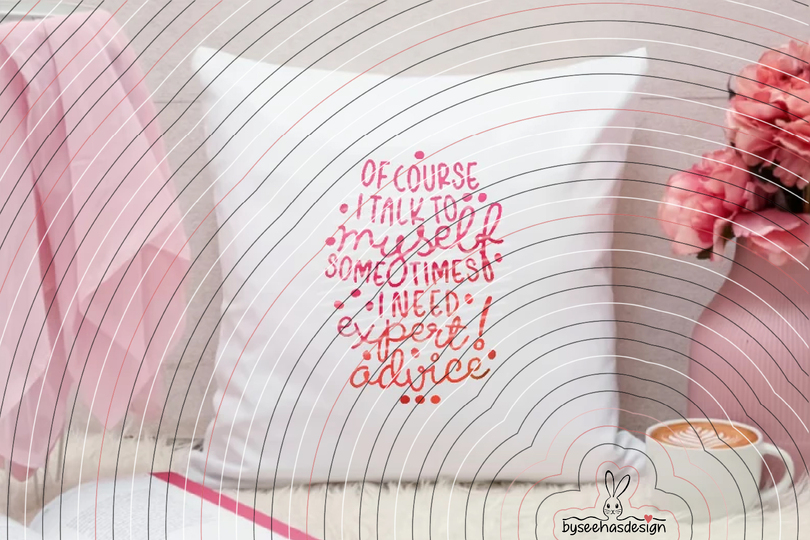 OF COURSE
I TALK TO
myself
SOMETIMES
I NEED
expert
advice!
byseehasdesign